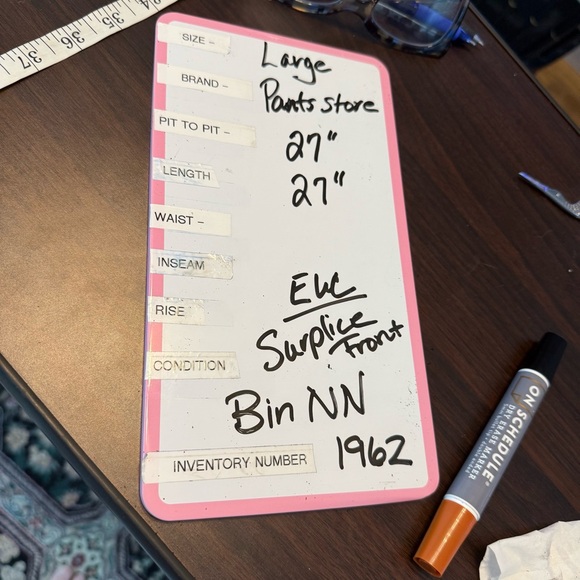 34
35
36
37
SIZE - Large
BRAND - Pants store
PIT TO PIT - 27"
LENGTH 27"
WAIST -
INSEAM
RISE EUC
Surplice Front
CONDITION
Bin NN
INVENTORY NUMBER 1962
ON SCHEDULE
DRY ERASE MARKER